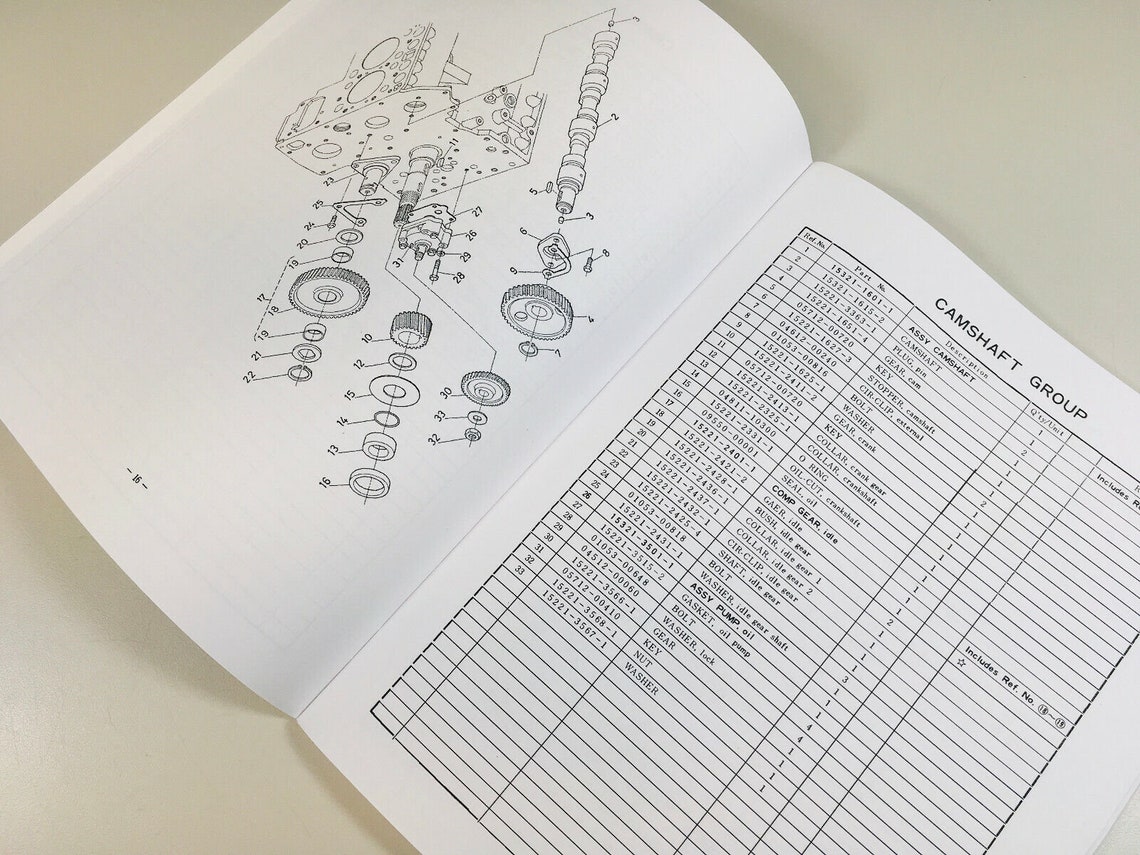 3
2
5
3
11
6
8
9
4
7
23
27
25
26
24
29
20
31
28
19
17
18
10
19
12
21
30
22
15
33
14
32
13
16
-16-
CAMSHAFT GROUP
Ref. No. Part No. Description Q'ty/Unit
1 15321-1601-1 ASSY CAMSHAFT 1
2 15321-1615-2 CAMSHAFT 1
3 15221-3363-1 PLUG, pin 2
4 15221-1651-4 GEAR, cam 1
5 05712-00720 KEY 1
6 15221-1622-3 STOPPER, camshaft 1
7 04612-00240 CIR-CLIP, external 1
8 01053-00816 BOLT 2
9 15221-1625-1 WASHER 1
10 15221-2411-2 GEAR, crank 1
11 05712-00720 KEY 1
12 15221-2413-1 COLLAR, crank gear 1
13 15221-2325-1 COLLAR, crankshaft 1
14 04811-10300 O RING 1
15 15221-2331-1 OIL-CUT, crankshaft 1
16 09550-00001 SEAL, oil 1
17 15221-2401-1 COMP GEAR, idle 1
18 GAER, idle 1
19 BUSH, idle gear 2
20 15221-2437-1 COLLAR, idle gear 1 1
21 15221-2432-1 COLLAR, idle gear 2 1
22 CIR-CLIP, idle gear 1
23 15221-2425-4 SHAFT, idle gear 1
24 01053-00818 BOLT 3
25 15221-2431-1 WASHER, idle gear shaft 1
26 15321-3501-1 ASSY PUMP, oil 1
27 15221-3515-2 GASKET, oil pump 1
28 01053-00648 BOLT 4
29 04512-00060 WASHER, lock 4
30 15221-3566-1 GEAR 1
31 05712-00410 KEY 1
32 15221-3568-1 NUT 1
33 15221-3567-1 WASHER 1
Includes Re
Includes Ref. No. ⑱~⑲
☆